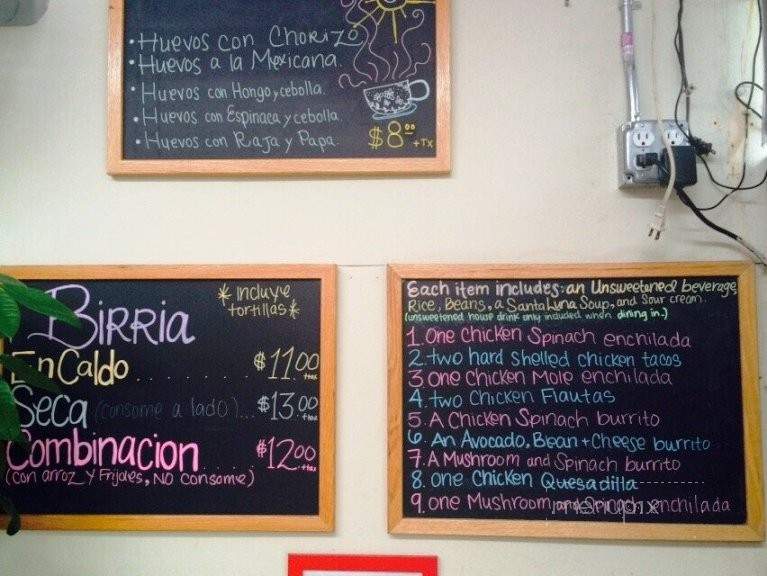 • Huevos con Chorizo
• Huevos a la Mexicana.
• Huevos con Hongo y cebolla.
• Huevos con Espinaca y cebolla.
• Huevos con Raja y Papa.
$8.00 +Tx
Birria
*Incluye tortillas*
En Caldo ........ $11.00 +tax
Seca (consome a lado)... $13.00 +tax
Combinacion ..... $12.00 +tax
(con arroz y Frijoles, NO consome)
Each item includes: an Unsweetened beverage,
Rice, Beans, a Santa Luna Soup, and Sour cream.
(unsweetened house drink only included when dining in.)
1. One Chicken Spinach enchilada
2. two hard shelled chicken tacos
3 one Chicken Mole enchilada
4. two Chicken Flautas
5. A Chicken Spinach burrito
6. An Avocado, Bean + Cheese burrito
7. A Mushroom and Spinach burrito
8. one Chicken Quesadilla
9. one Mushroom and Spinach enchilada